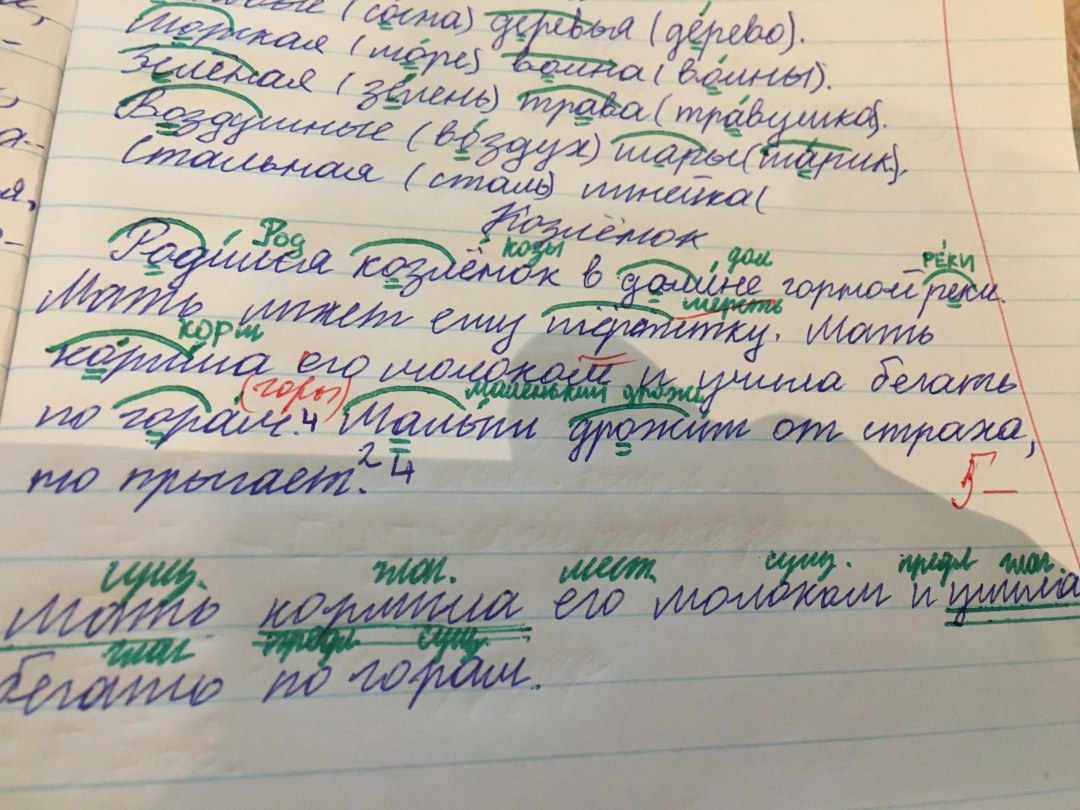 (сосна) деревья (дерево).
Морская (море) волна (волны).
Зелёная (зелень) трава (травушка).
Воздушные (воздух) шары (шарик).
Стальная (сталь) линейка (
Козлёнок
Род козы дол РЕКИ
Родился козлёнок в долине горной реки.
шерсть
Мать лижет ему шёрстку. Мать
корм
кормила его молоком и учила бегать
(горы) маленький дрожь
по горам.4 Малыш дрожит от страха,
то прыгает.2 4
5-
сущ. глаг. мест. сущ. предл глаг.
Мать кормила его молоком и учила
глаг предл сущ.
бегать по горам.